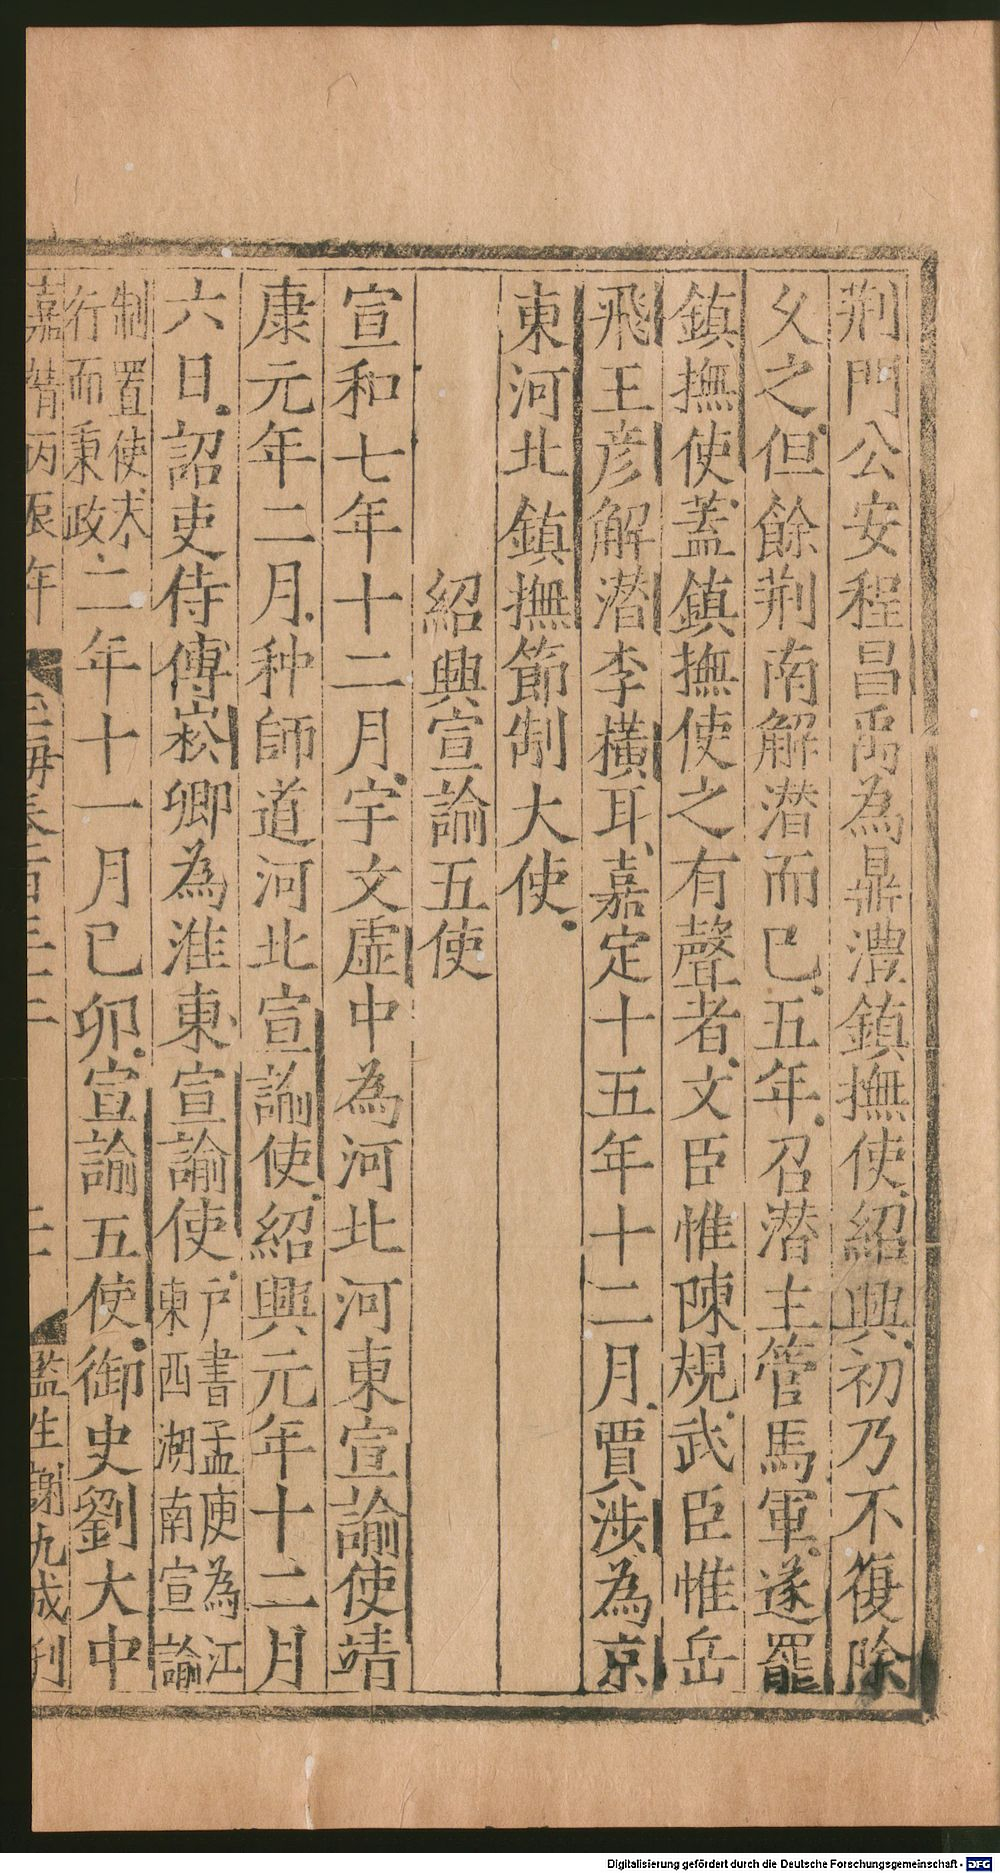 荆門公安程昌禹為鼎澧鎮撫使紹興初乃不復除
久之但餘荆南解潛而巳五年召潛主管馬軍遂罷
鎮撫使蓋鎮撫使之有聲者文臣惟陳規武臣惟岳
飛王彥解潛李橫耳嘉定十五年十二月賈涉為京
東河北鎮撫節制大使
紹興宣諭五使
宣和七年十二月宇文虛中為河北河東宣諭使靖
康元年二月种師道河北宣諭使紹興元年十二月
六日詔吏侍傅崧卿為淮東宣諭使户書孟庾為江
東西湖南宣諭
制置使未
行而秉政二年十一月巳卯宣諭五使御史劉大中
嘉靖丙辰年 玉海卷百三十二 監生謝九成刋
Digitalisierung gefördert durch die Deutsche Forschungsgemeinschaft - DFG